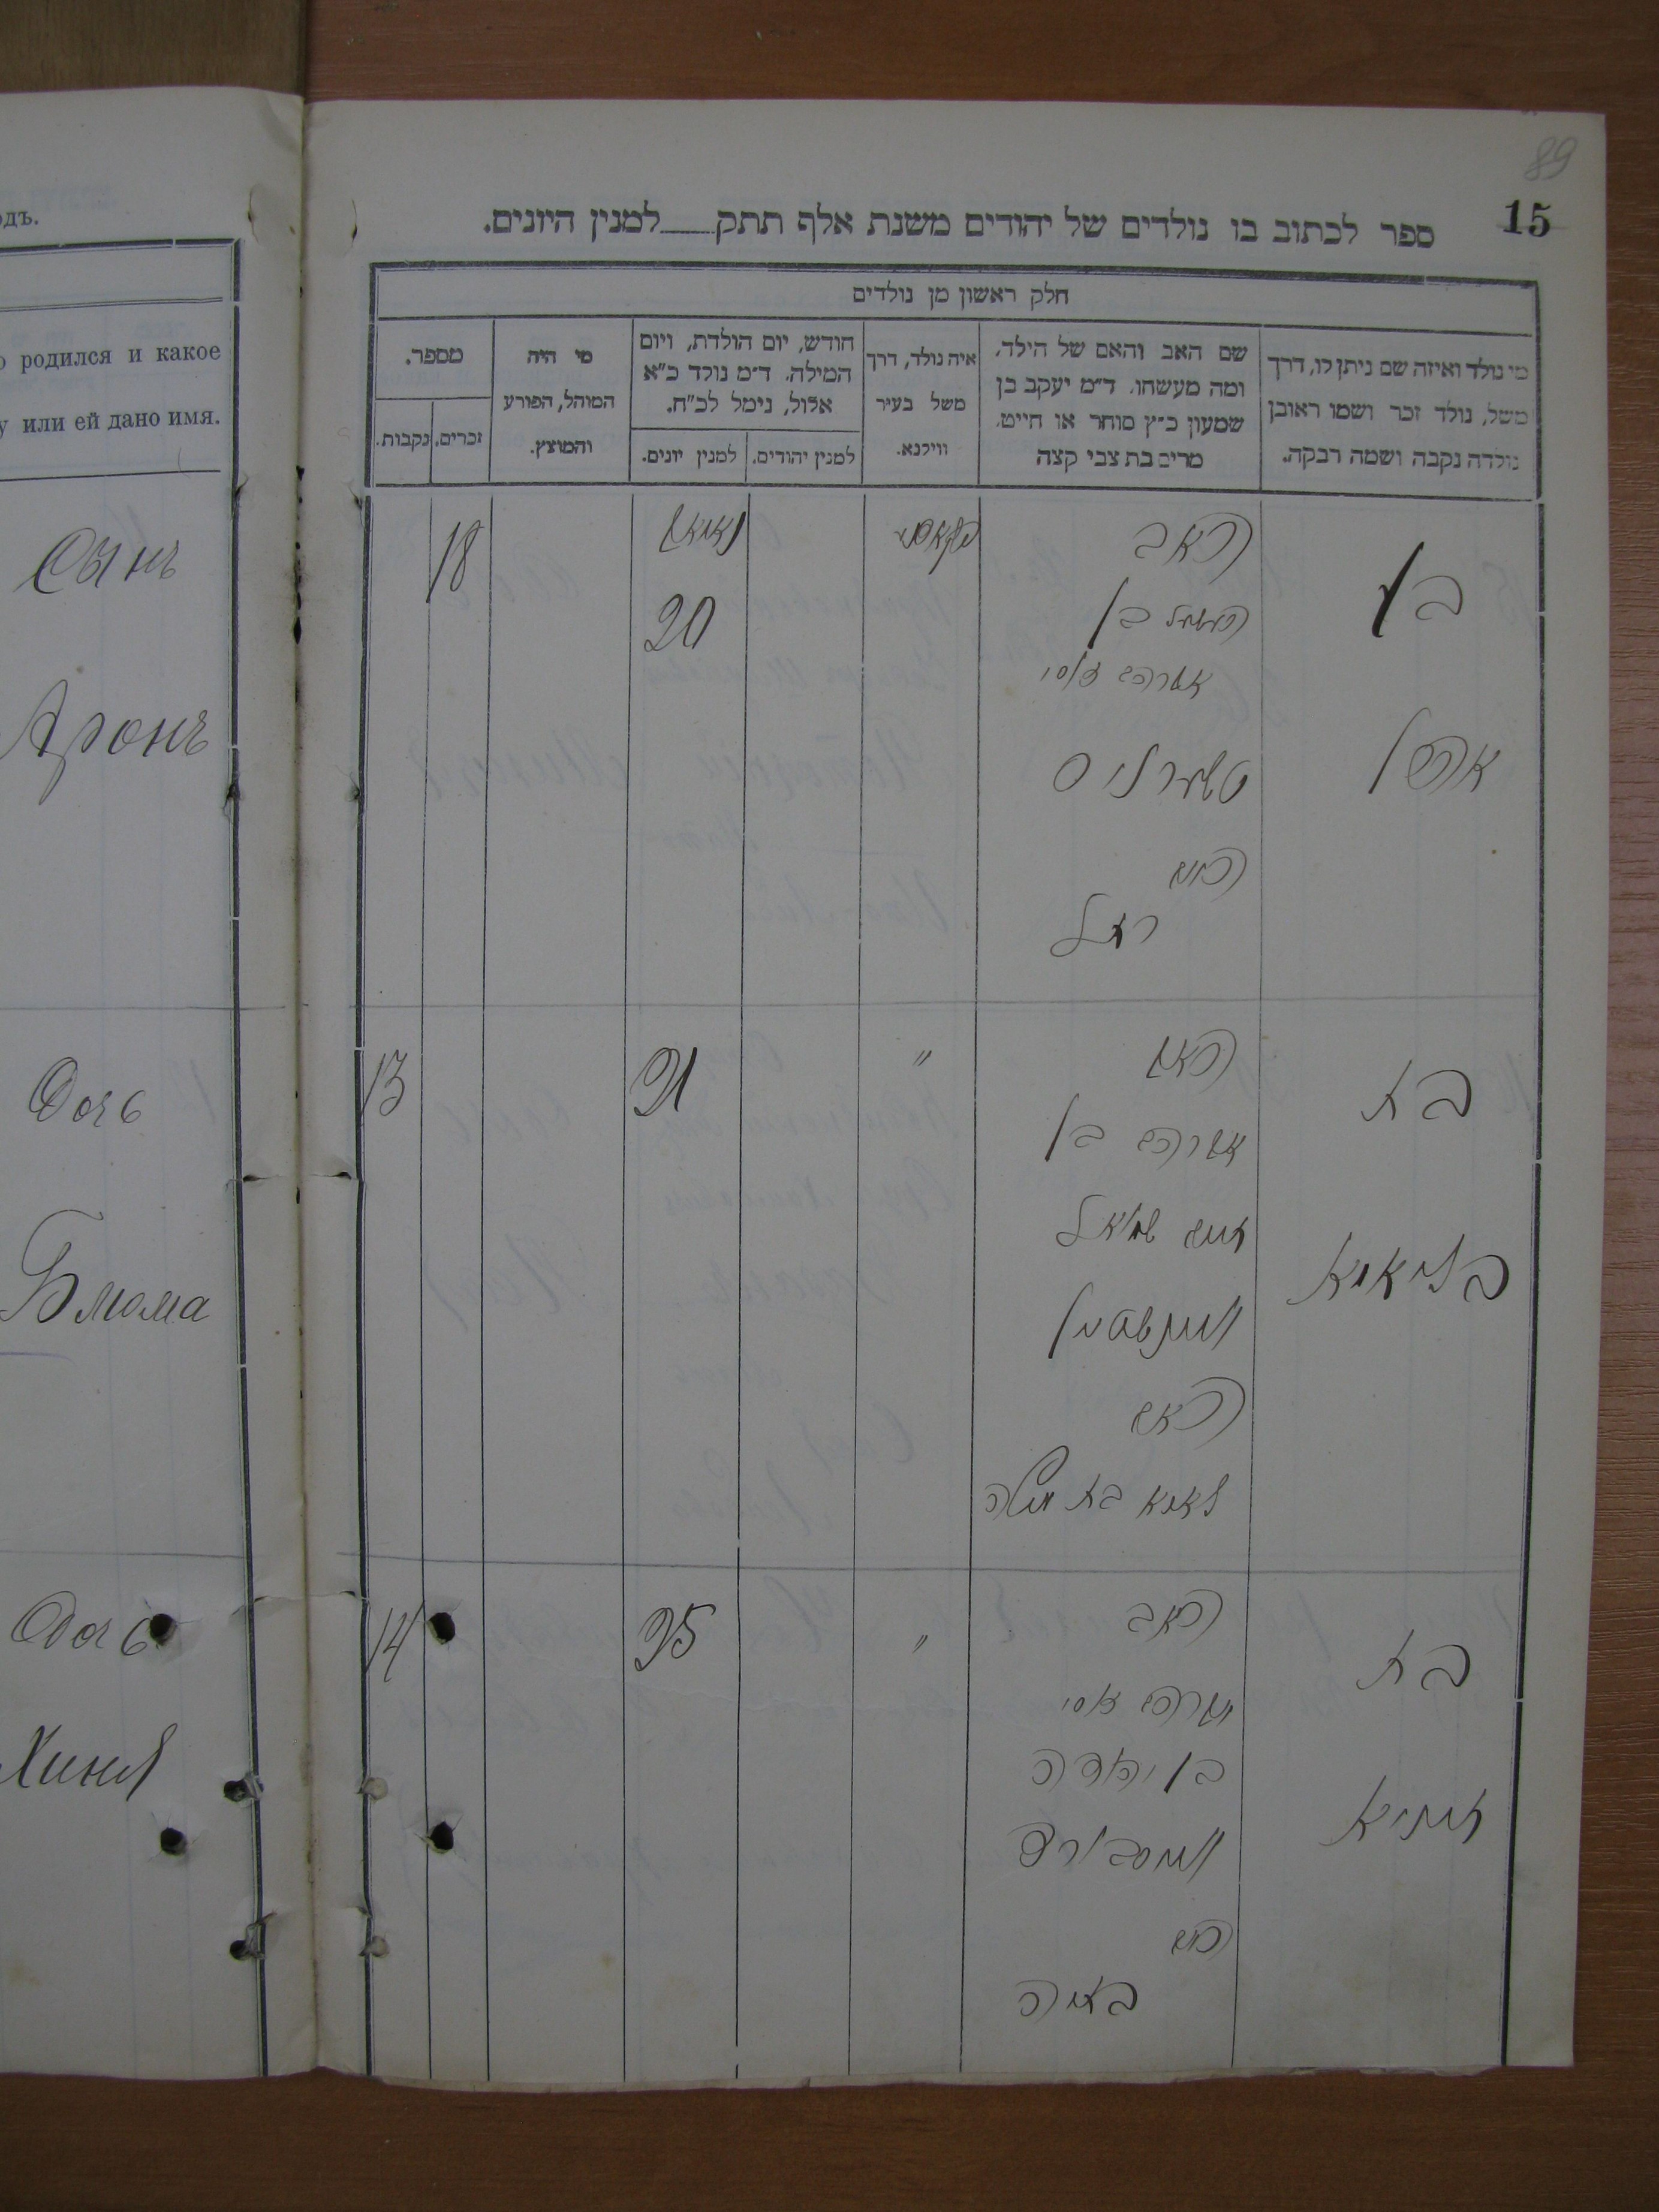 одъ.
о родился и какое
у или ей дано имя.
Сынъ
Аронъ
Дочь
Блюма
Дочь
Хиня
89
15
ספר לכתוב בו נולדים של יהודים משנת אלף תתק___למנין היונים.
חלק ראשון מן נולדים
מי נולד ואיזה שם ניתן לו, דרך
משל, נולד זכר ושמו ראובן
נולדה נקבה ושמה רבקה.
שם האב והאם של הילד,
ומה מעשהו. ד״מ יעקב בן
שמעון כ״ץ סוחר או חייט,
מרים בת צבי קצה
איה נולד, דרך
משל בעיר
ווילנא.
חודש, יום הולדת, ויום
המילה. ד״מ נולד כ״א
אלול, נימל לכ״ח.
למנין יהודים.
למנין יונים.
מי היה
המוהל, הפורע
והמוצץ.
מספר.
זכרים.
נקבות.
בן
אהרן
האב
בן
אברהם
האם
רחל
20
18
בת
בליומא
האב
אברהם בן
האם
"
21
13
בת
חיניא
האב
בן יהודה
האם
"
25
14